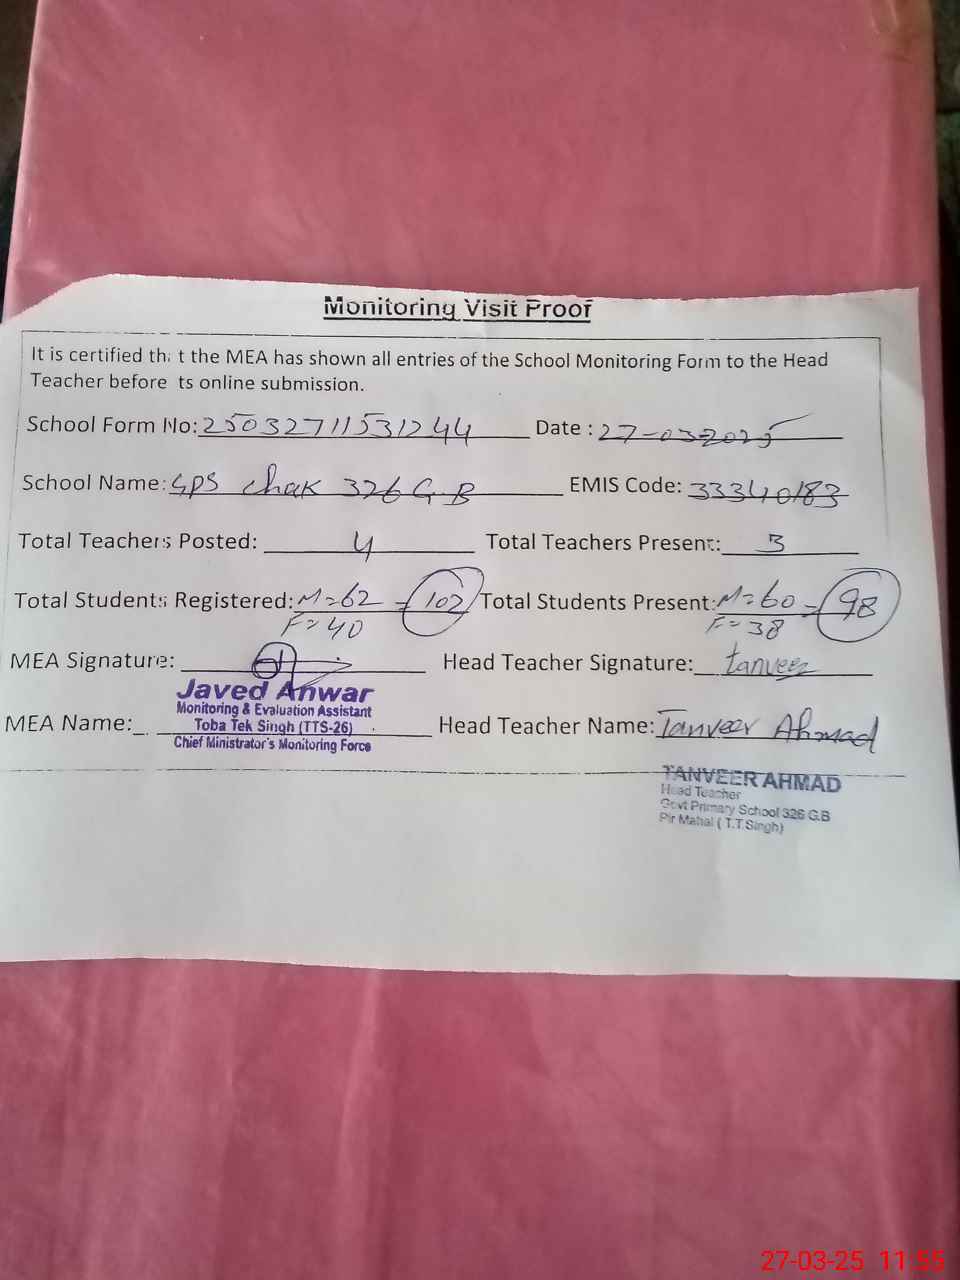 Monitoring Visit Proof
It is certified that the MEA has shown all entries of the School Monitoring Form to the Head
Teacher before its online submission.
School Form No: 25032711531244 Date : 27-03-2025
School Name: GPS Chak 326 G.B EMIS Code: 33340183
Total Teachers Posted: 4 Total Teachers Present: 3
Total Students Registered: M=62 = 102 Total Students Present: M=60 = 98
F=40 F=38
MEA Signature: Head Teacher Signature: tanveer
Javed Anwar
Monitoring & Evaluation Assistant
MEA Name: Toba Tek Singh (TTS-26) Head Teacher Name: Tanveer Ahmad
Chief Ministrator's Monitoring Force
TANVEER AHMAD
Head Teacher
Govt Primary School 326 G.B
Pir Mahal ( T.T.Singh)
27-03-25 11:55